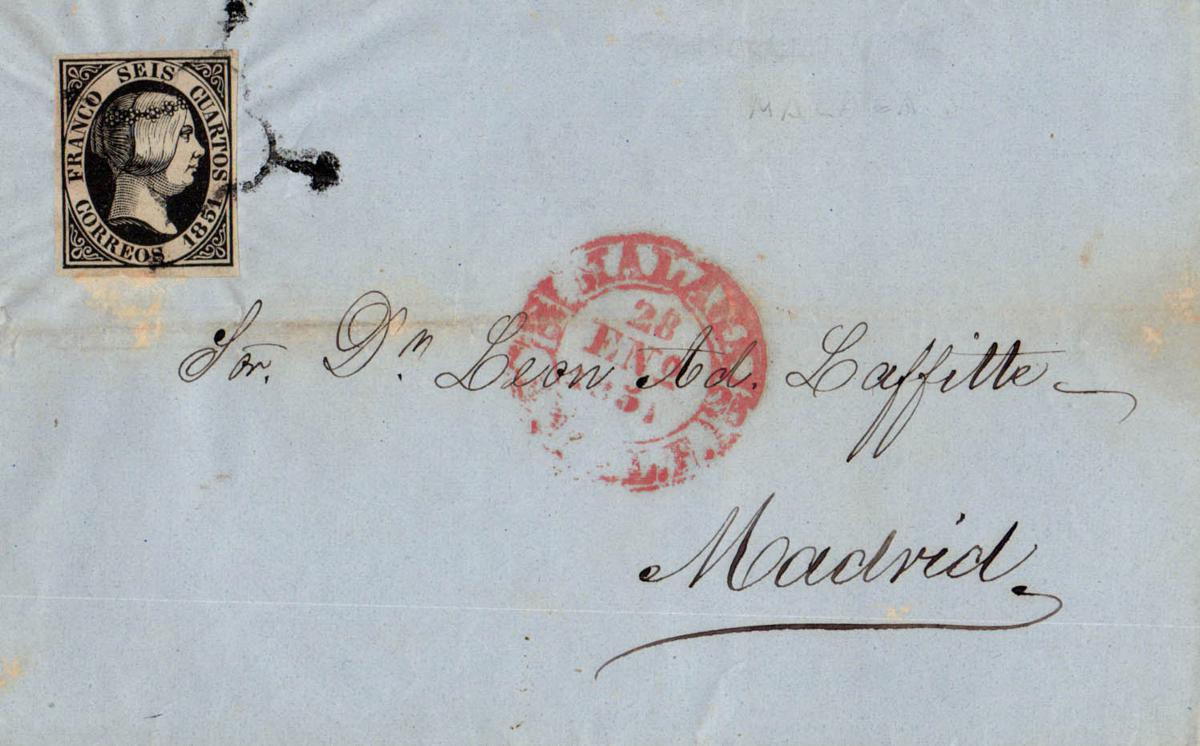 FRANCO SEIS CUARTOS
CORREOS 1851
MALAGA
28
ENE
1851
Sor. Dn. Leon Ad. Laffitte
Madrid.